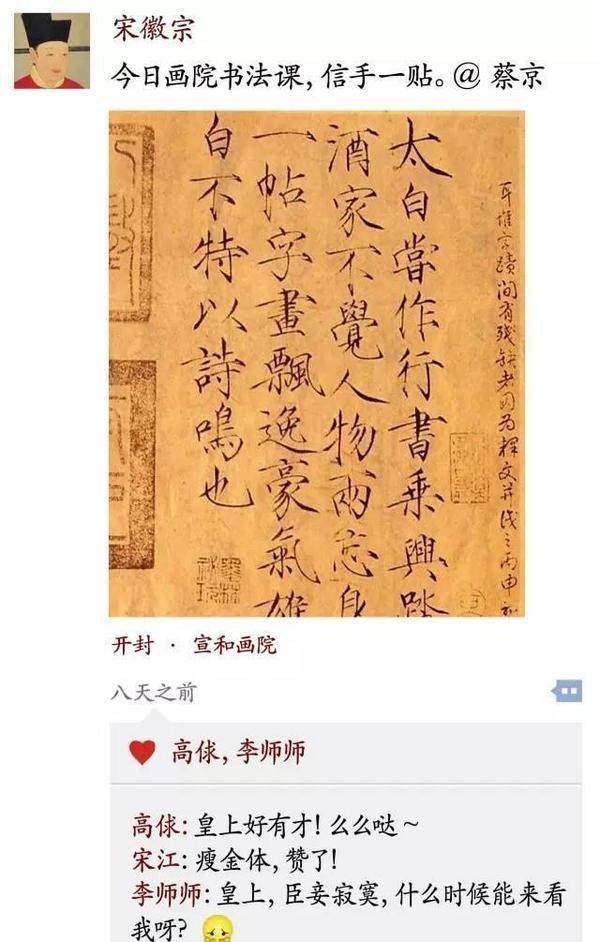 宋徽宗
今日画院书法课, 信手一贴。@ 蔡京
太白嘗作行書乘興踏
酒家不覺人物兩忘身
一帖字畫飄逸豪氣雄
白不特以詩鳴也
開有殘缺
釋文并
丙申
开封 · 宣和画院
八天之前
高俅, 李师师
高俅: 皇上好有才! 么么哒~
宋江: 瘦金体, 赞了!
李师师: 皇上, 臣妾寂寞, 什么时候能来看
我呀?